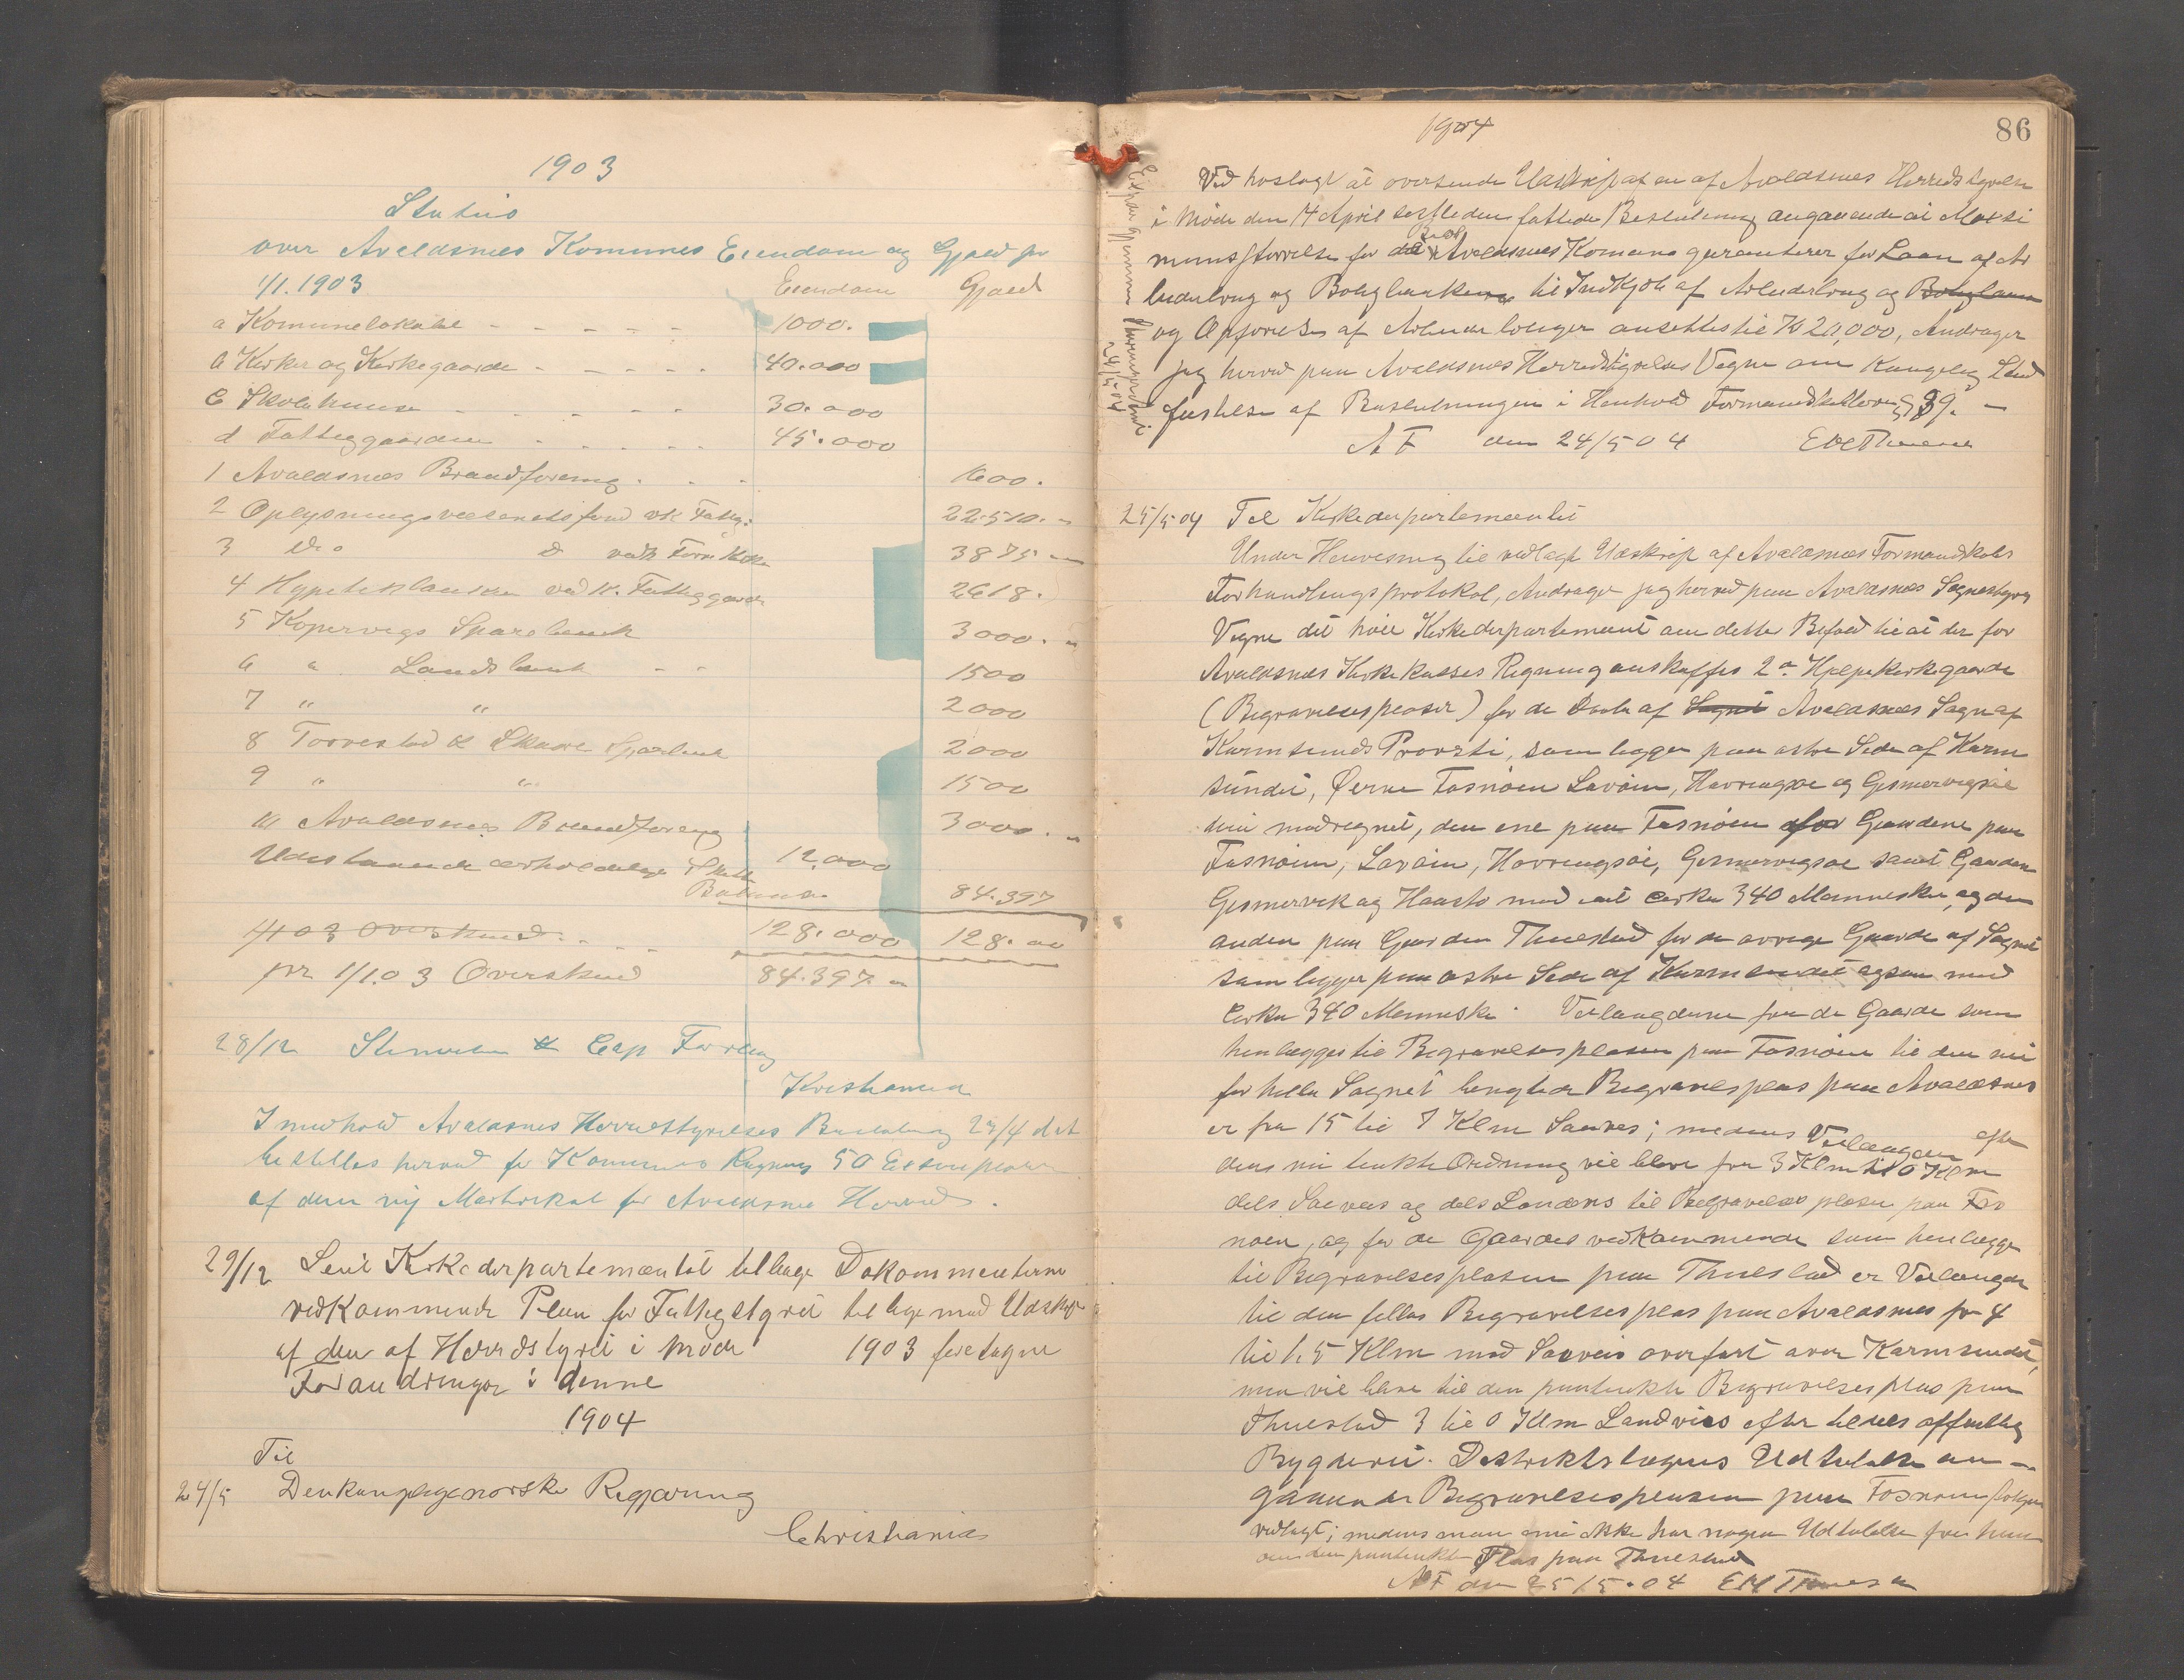 1903
Status
over Avaldsnes Komunes Eiendom og Gjæld pr
1/1. 1903 Eiendom Gjæld
a Komunelokale - - - - - 1000.
b Kirker og Kirkegaarde - - - - - 40.000
c Skolehuse - - - - - 30.000
d Fattiggaarden - - - - - 45.000
1 Avaldsnes Brandforening . . . 600.
2 Oplysningsvæsenets fond vk Fattig. 22.510. "
3 do d vedk Førre Kirke 3875 "
4 Hypotekbanken vedk. Fattiggaarde 2618.
5 Kopervigs Sparebank 3000. "
6 " Landsbank - - 1500
7 " " 2000
8 Torvestad & Skaare Sparbank 2000
9 " " 1500
10 Avaldsnes Brandforening 3000. "
Udestaaende erholdelige Skatt 12,000
Balance 84.397
1/1 03 Overskud . . . 128.000 128.00
pr 1/1.03 Overskud 84.397. "
28/12 Stenersen & Cap Forlag
Kristiania
I medhold Avaldsnes Herredstyrelses Beslutning 23/4 d A
bestilles herved for Komunes Regning 50 Eksemplarer
af den ny Matrikul for Avaldsnes Herred.
29/12 Sent Kirkedepartementet tilbage Dokommenterne
vedkommende Plan for Fattigstyret tillige med Udskrift
af den af Herredstyret i Møde 1903 foretagne
Forandringer i denne
1904
Til
24/5 Den kongelige norske Regjering
Christiania
1904
86
Ved hoslagt at oversende Udskrift af en af Avaldsnes Herredstyrelse
i Møde den 14 April sidstleden fattede Beslutning angaaende at Maksi
mumsstørrelse for det Beløb Avaldsnes Komune garanterer for Laan af Ar
beiderbrug og Boligbanken til Indkjøb af Arbeiderbrug og Boliglaan
og Opførelse af Arbeider boliger ansættes til Kr 20,000, Andrager
jeg herved paa Avaldsnes Herredstyrelses Vegne om Kongelig Stad
fæstelse af Beslutningen i Henhold Formandskabloven § 39. -
A F den 24/5 04
25/5 04 Til Kirkedepartementet
Under Henvisning til vedlagt Udskrift af Avaldsnes Formandskabs
Forhandlingsprotokol, Andrager jeg herved paa Avaldsnes Sognestyres
Vegne det høie Kirkedepartement om dette Befaled til at der for
Avaldsnes Kirkekasses Regning anskaffes 2 Hjelpekirkegaarde
(Begravelsespladser) for de Dele af Sognet Avaldsnes Sogn af
Karmsunds Provsti, som ligger paa østre Side af Karm
sundet, Øerne Fosnøen Lavøen, Havrengsøe og Gismervigsøe
heri medregnet, den ene paa Fosnøen for Gaardene paa
Fosnøen, Lavøen, Havrengsøe, Gismervigsøe samt Gaarden
Gismervik og Haasto med ialt cirka 340 Mennesker, og den
anden paa Gaarden Thuestad for de øvrige Gaarde af Sognet
som ligger paa østre Side af Karmsundet ogsaa med
Cirka 340 Menneske. Veilængderne fra de Gaarde som
henlægges til Begravelsespladsen paa Fosnøen til den nu
for hele Sognet Begravelsplas paa Avaldsnes
er fra 15 til 7 Klm Søveies; medens Veilængden efter
den nu tenkte Ordning vil blive fra 3 Klm til 0 Klm
dels Søveies og dels Landeves til Begravelses pladsen paa Fos
nøen, og for de Gaardes vedkommende som henlægges
til Begravelsespladsen paa Thuestad er Veilængden
til den felles Begravelsesplas paa Avaldsnes fra 4
til 1.5 Klm med Søveis overfart over Karmsundet,
men vil blive til den paatenkte Begravelses plas paa
Thuestad 3 til 0 Klm Landveies efter offentlig
Bygdevei. Distriktslægens Udtalelse an-
gaaende Begravelsespladsen paa Fosnøen følger
vedlagt; medens man ennu ikke har nogen Udtalelse fra ham
om den paatenkte Plas paa Thuestad
AF den 25/5.04